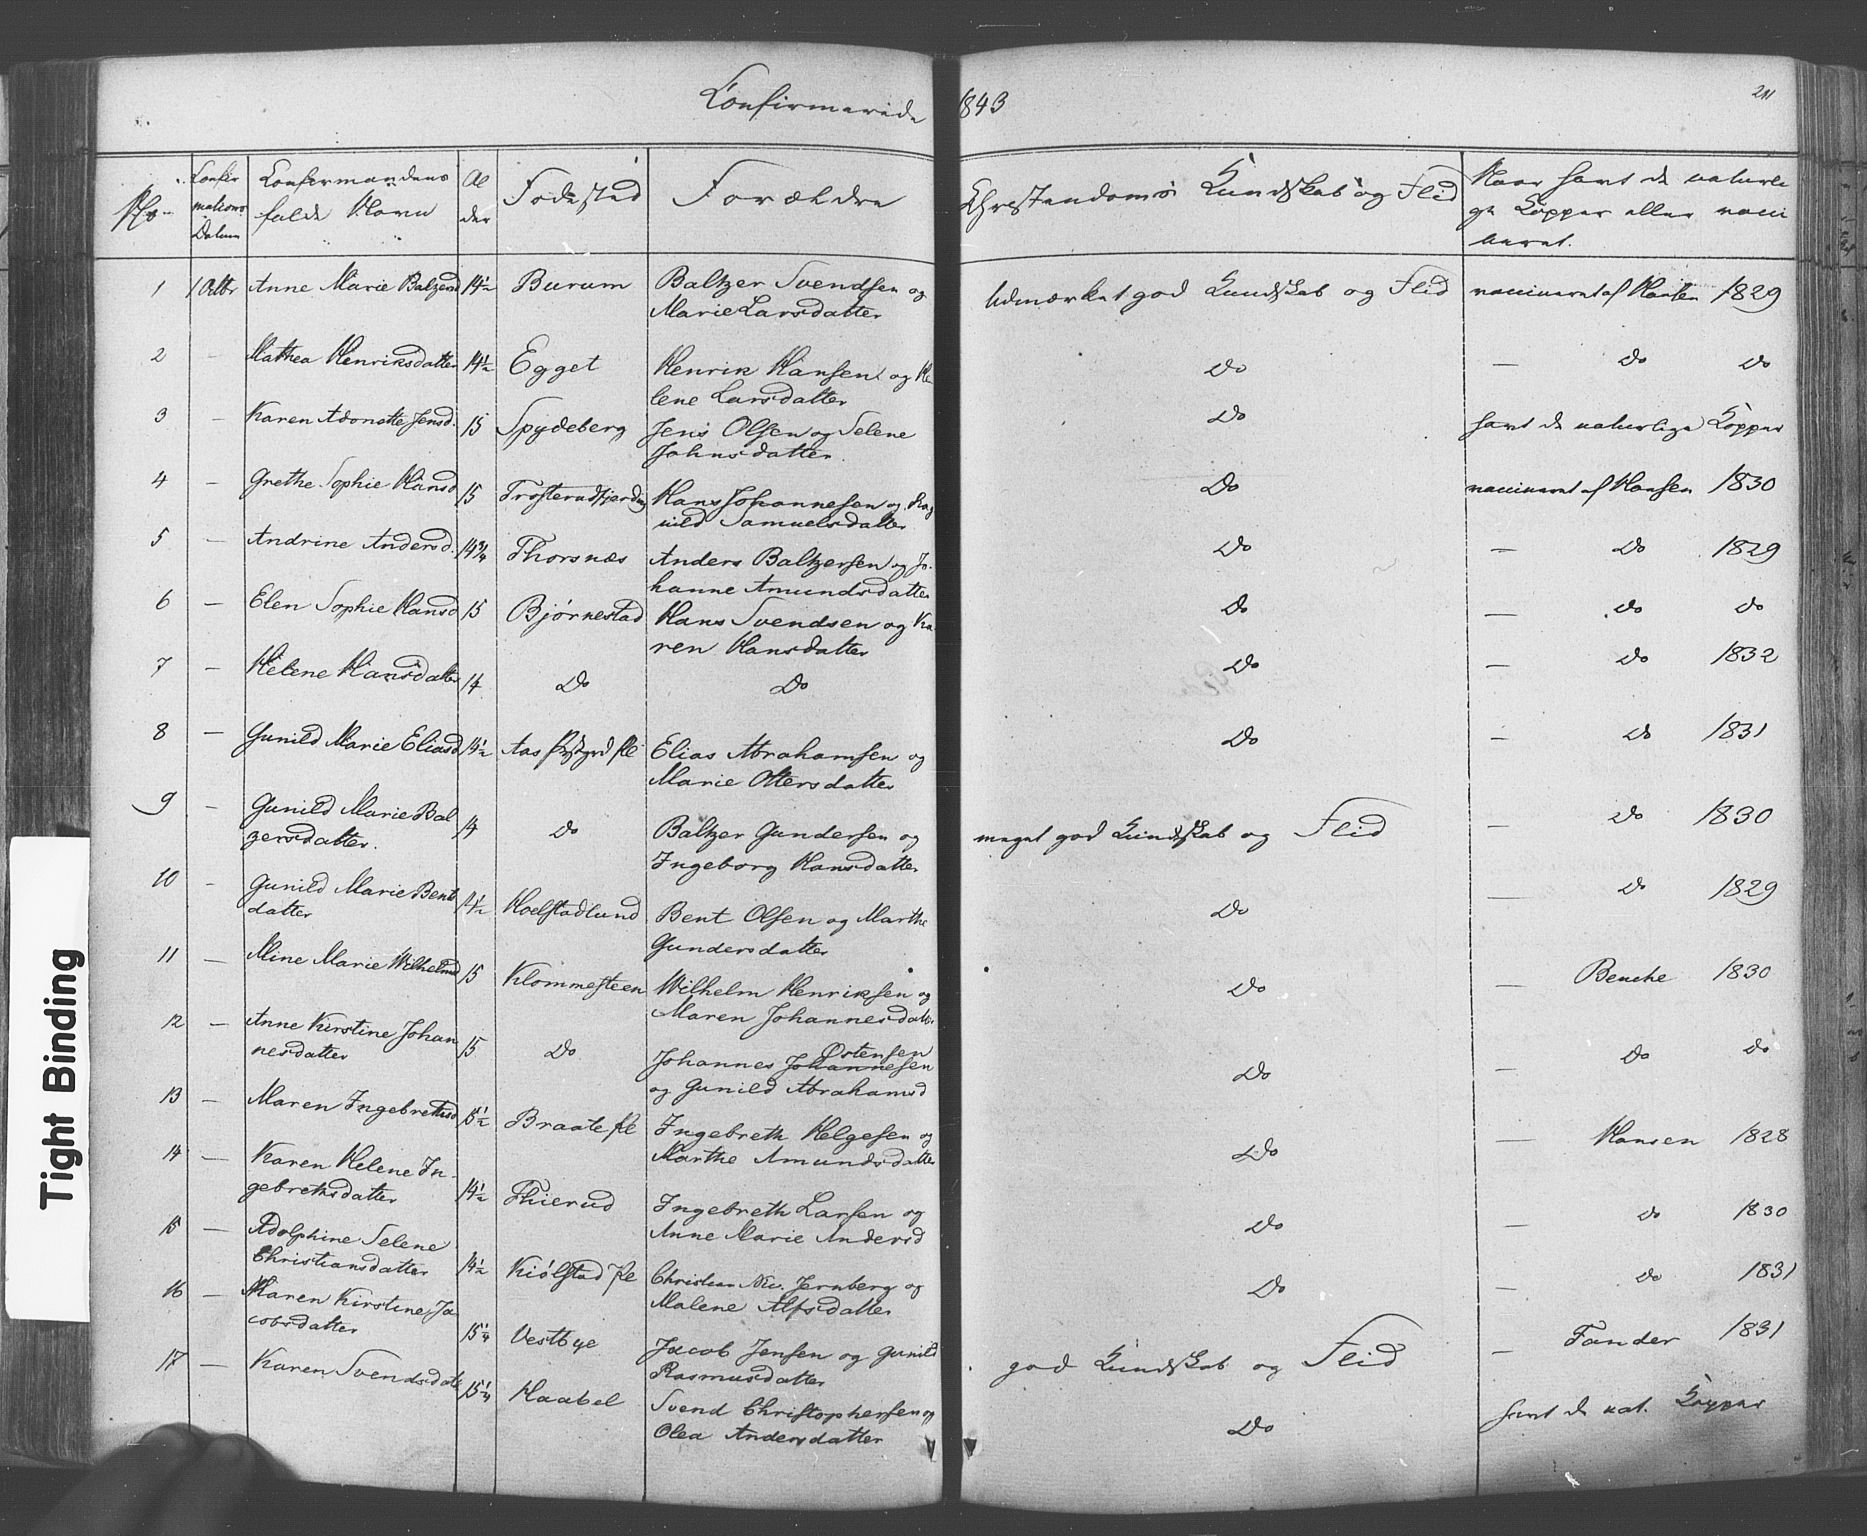 Confirmerede 1843
211
No
Confir
mations
Datum
Confirmandens
fulde Navn
Al
der
Fødested
Forældre
Christendoms Kundskab og Flid
Naar havt de naturli
ge Kopper eller vacci
neret.
1 1 Octbr Anne Marie Balzersd 14½ Burum Baltzer Svendsen og
Marie Larsdatter
Udmærket god Kundskab og Flid vaccineret af Hansen 1829
2 — Mathea Henriksdatter 14½ Egget Henrik Hansen og He
lene Larsdatter
Do — Do Do
3 — Karen Adonette Jensd. 15 Spydeberg Jens Olsen og Selene
Johnsdatter
Do havt de naturlige Kopper
4 — Grethe Sophie Hansd 15 Trøsterudfjerding Hans Johannesen og Rag
nild Samuelsdatter
Do vaccineret af Hansen 1830
5 — Andrine Andersd. 14¾ Thorsnæs Anders Baltzersen og Jo
hanne Amundsdatter
Do — Do 1829
6 — Elen Sophie Hansd 15 Bjørnestad Hans Svendsen og Ka
ren Hansdatter
Do — Do Do
7 — Helene Hansdatter 14 Do Do
Do — Do 1832
8 — Gunild Marie Eliasd 14½ Aas Elias Abrahamsen og
Marie Ottersdatter
Do — Do 1831
9 — Gunild Marie Bal
zersdatter. 14 Do Baltzer Gundersen og
Ingeborg Hansdatter
meget god Kundskab og Flid — Do 1830
10 — Gunild Marie Bents
datter 14½ Hoelstadlund Bent Olsen og Marthe
Gundersdatter
Do — Do 1829
11 — Mine Marie Wilhelmsd 15 Klommesteen Wilhelm Henriksen og
Maren Johannesdatter
Do — Benche 1830
12 — Anne Kirstine Johan
nesdatter 15 Do Østensen
Johannes Johannesen
og Gunild Abrahamsd
Do — Do Do
13 — Maren Ingebrethsd 15½ Braate Ple Ingebreth Helgesen og
Marthe Amundsdatter
Do — Hansen 1828
14 — Karen Helene In-
gebrethsdatter 14½ Thierud Ingebreth Larsen og
Anne Marie Andersd
Do — Do 1830
15 — Adolphine Selene
Christiansdatter 14½ Kiølstad Ple Christian Nic. Jernberg og
Malene Alfsdatter
Do — Do 1831
16 — Maren Kirstine Ja
cobsdatter 15¼ Vestbye Jacob Jensen og Gunild
Rasmusdatter
god Kundskab og Flid — Fander 1831
17 — Karen Svendsdatt 15¼ Haabel Svend Christophersen og
Olea Andersdatter
Do havt de nat. Kopper
Tight Binding